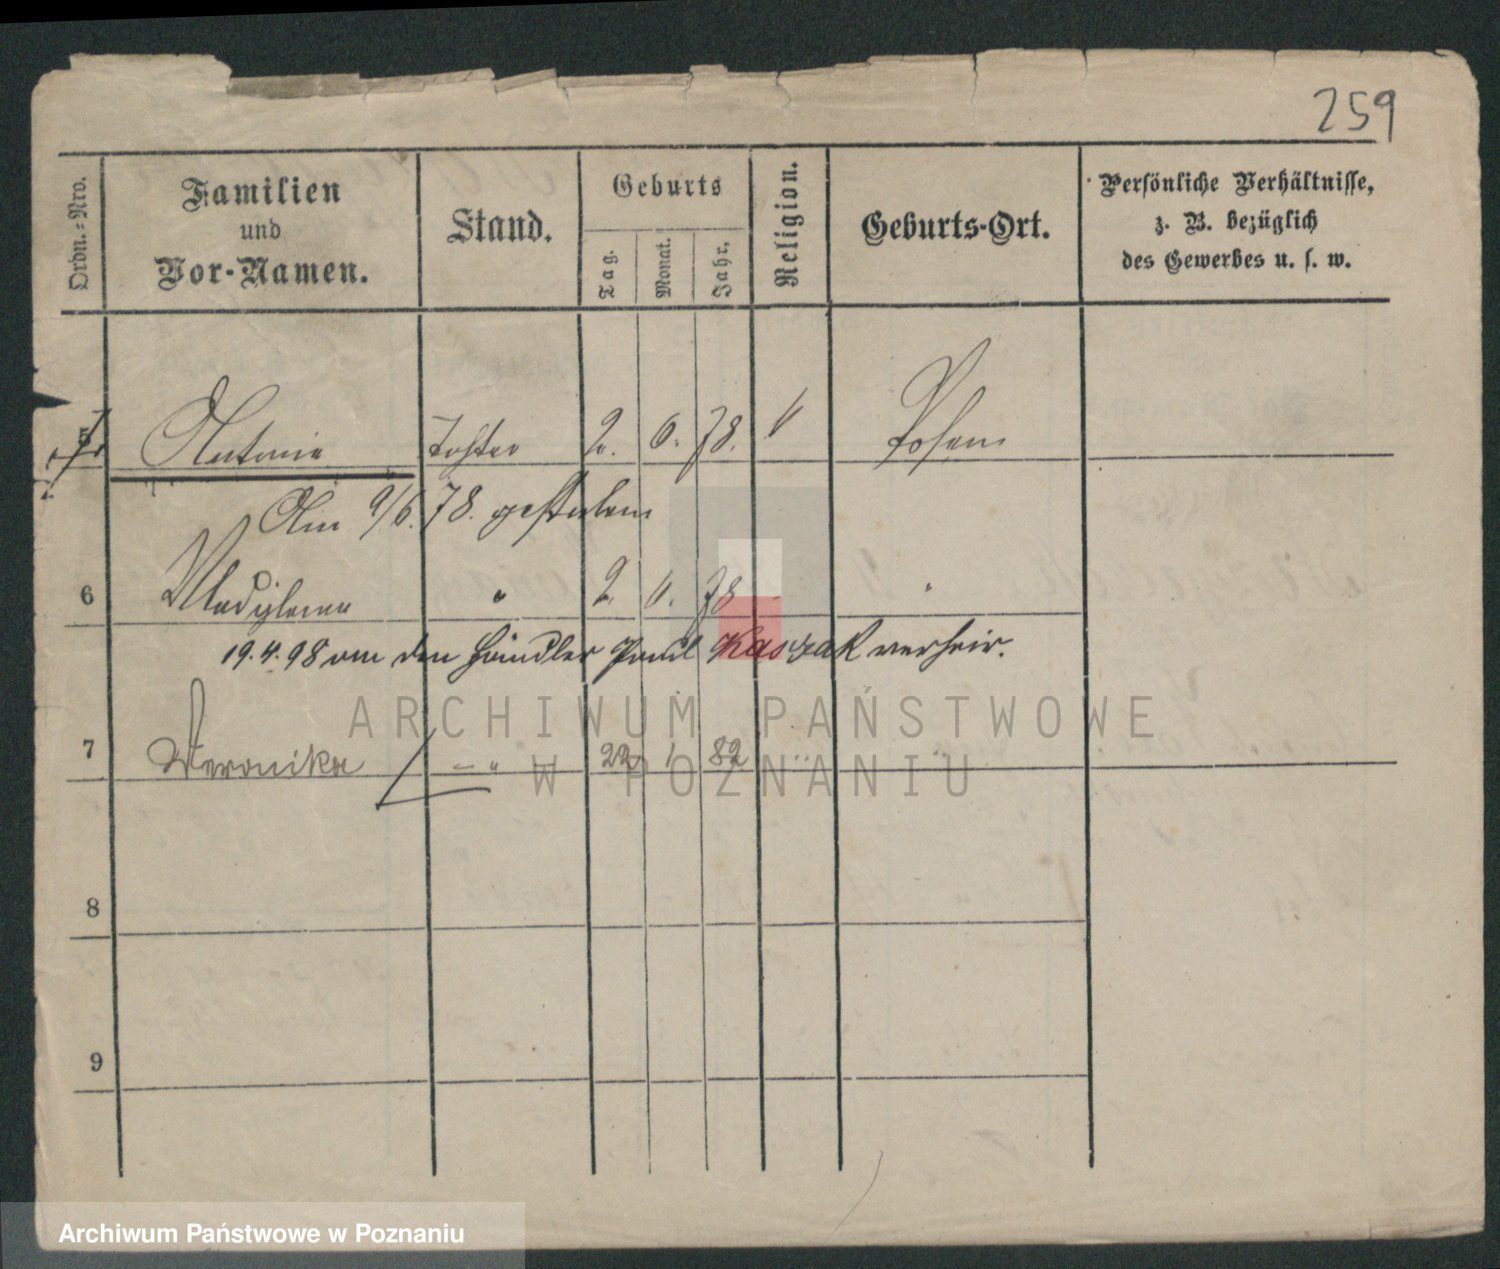 259
Ordn.-Nro.
Familien
und
Vor-Namen.
Stand.
Geburts
Tag.
Monat.
Jahr.
Religion.
Geburts-Ort.
Persönliche Verhältnisse,
z. B. bezüglich
des Gewerbes u. s. w.
5 Antonie Tochter 2. 6. 78. Posen
Am 9/6. 78. gestorben
6 " 2. 78 "
19.4.98 an den Händler Paul Kaszak verheir.
7 Veronika – " – 22 1 82 "
8
9
ARCHIWUM PAŃSTWOWE
W POZNANIU
Archiwum Państwowe w Poznaniu